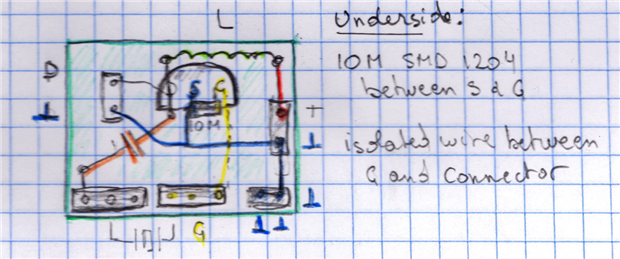 L
Underside:
10M SMD 1204
between S & G
isolated wire between
G and connector
D
⊥
S G
10M
+
⊥
⊥
G
⊥ ⊥